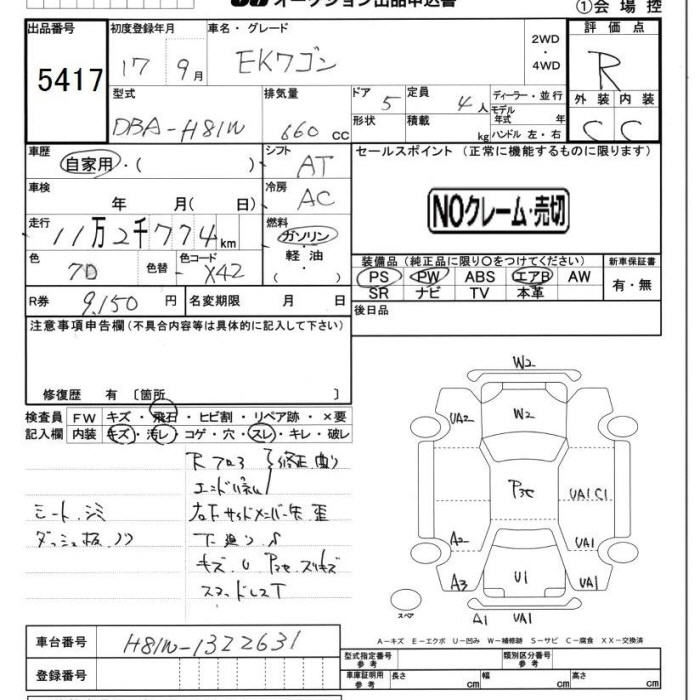 オークション出品申込書
①会場控
出品番号 初度登録年月 車名・グレード 評価点
5417
17年9月 EKワゴン 2WD・4WD R
型式 排気量 ドア 定員 ディーラー・並行 外装 内装
DBA-H81W 660cc 5 4人 モデル年式 年 C C
形状 積載 kg ハンドル 左・右
車歴 自家用・( ) シフト AT セールスポイント (正常に機能するものに限ります)
車検 年 月( 日) 冷房 AC
NOクレーム・売切
走行 11万2千774km 燃料 ガソリン・軽油・( )
色 色替 色コード X42
装備品 (純正品に限り○をつけてください) 新車保証書
PS PW ABS エアB AW 有・無
SR ナビ TV 本革
R券 9,150円 名変期限 月 日 後日品
注意事項申告欄(不具合内容等は具体的に記入して下さい)
修復歴 有〔箇所 〕
検査員 FW キズ・飛石・ヒビ割・リペア跡・×要
記入欄 内装 キズ・汚レ・コゲ・穴・スレ・キレ・破レ
シート.シミ
W2
W2
UA2
P3セ
UA1 C1
A2
UA1
A3
U1
UA1
A1 UA1
スペア
A-キズ E-エクボ U-凹み W-補修跡 S-サビ C-腐食 XX-交換済
車台番号 H81W-1322631
型式指定番号 参考 類別区分番号 参考
登録番号
車庫証明用 参考 長さ cm 幅 cm 高さ cm